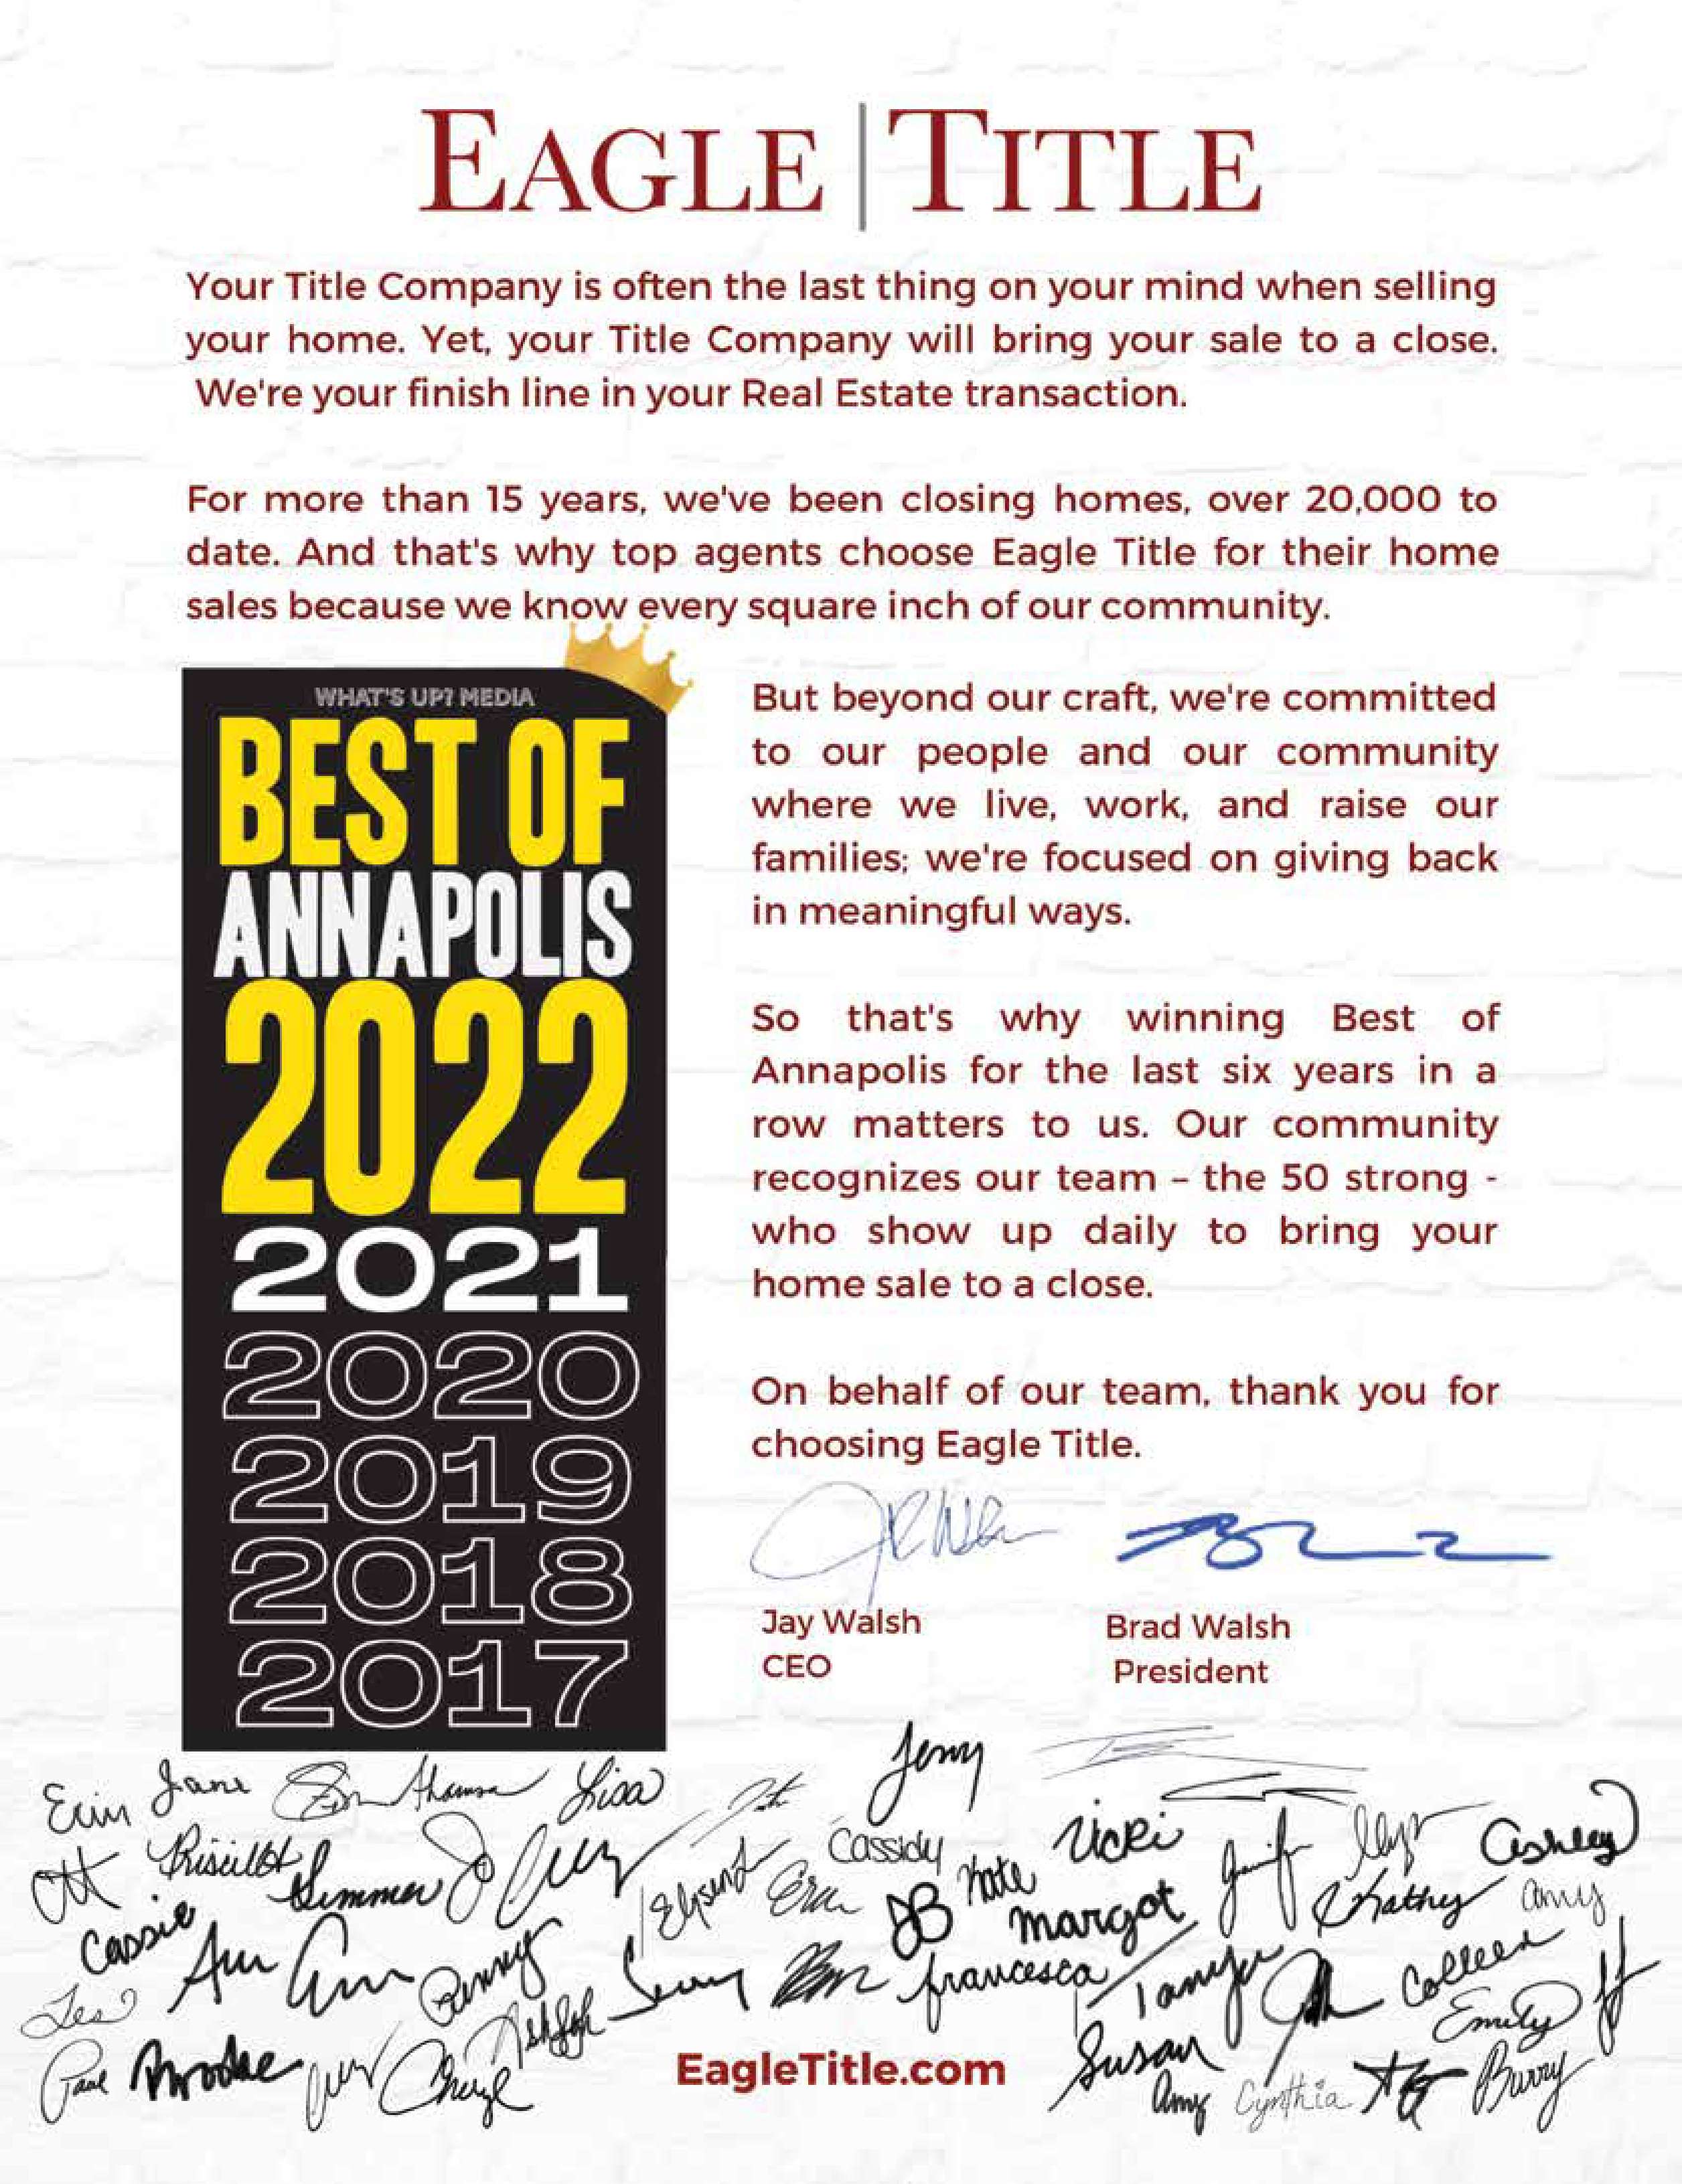 EAGLE | TITLE
Your Title Company is often the last thing on your mind when selling
your home. Yet, your Title Company will bring your sale to a close.
We're your finish line in your Real Estate transaction.
For more than 15 years, we've been closing homes, over 20,000 to
date. And that's why top agents choose Eagle Title for their home
sales because we know every square inch of our community.
WHAT'S UP? MEDIA
BEST OF
ANNAPOLIS
2022
2021
2020
2019
2018
2017
But beyond our craft, we're committed
to our people and our community
where we live, work, and raise our
families; we're focused on giving back
in meaningful ways.
So that's why winning Best of
Annapolis for the last six years in a
row matters to us. Our community
recognizes our team – the 50 strong -
who show up daily to bring your
home sale to a close.
On behalf of our team, thank you for
choosing Eagle Title.
Jay Walsh
CEO
Brad Walsh
President
Erin Jane Lisa
Jenny
Cassidy
Vicki
Ashley
Summer
Kate
Margot
Kathy
Amy
Cassie
Ann
Penny
Francesca
Tanya
Colleen
Emily
Brooke
Cheryl
EagleTitle.com
Susan
Amy
Cynthia
Barry